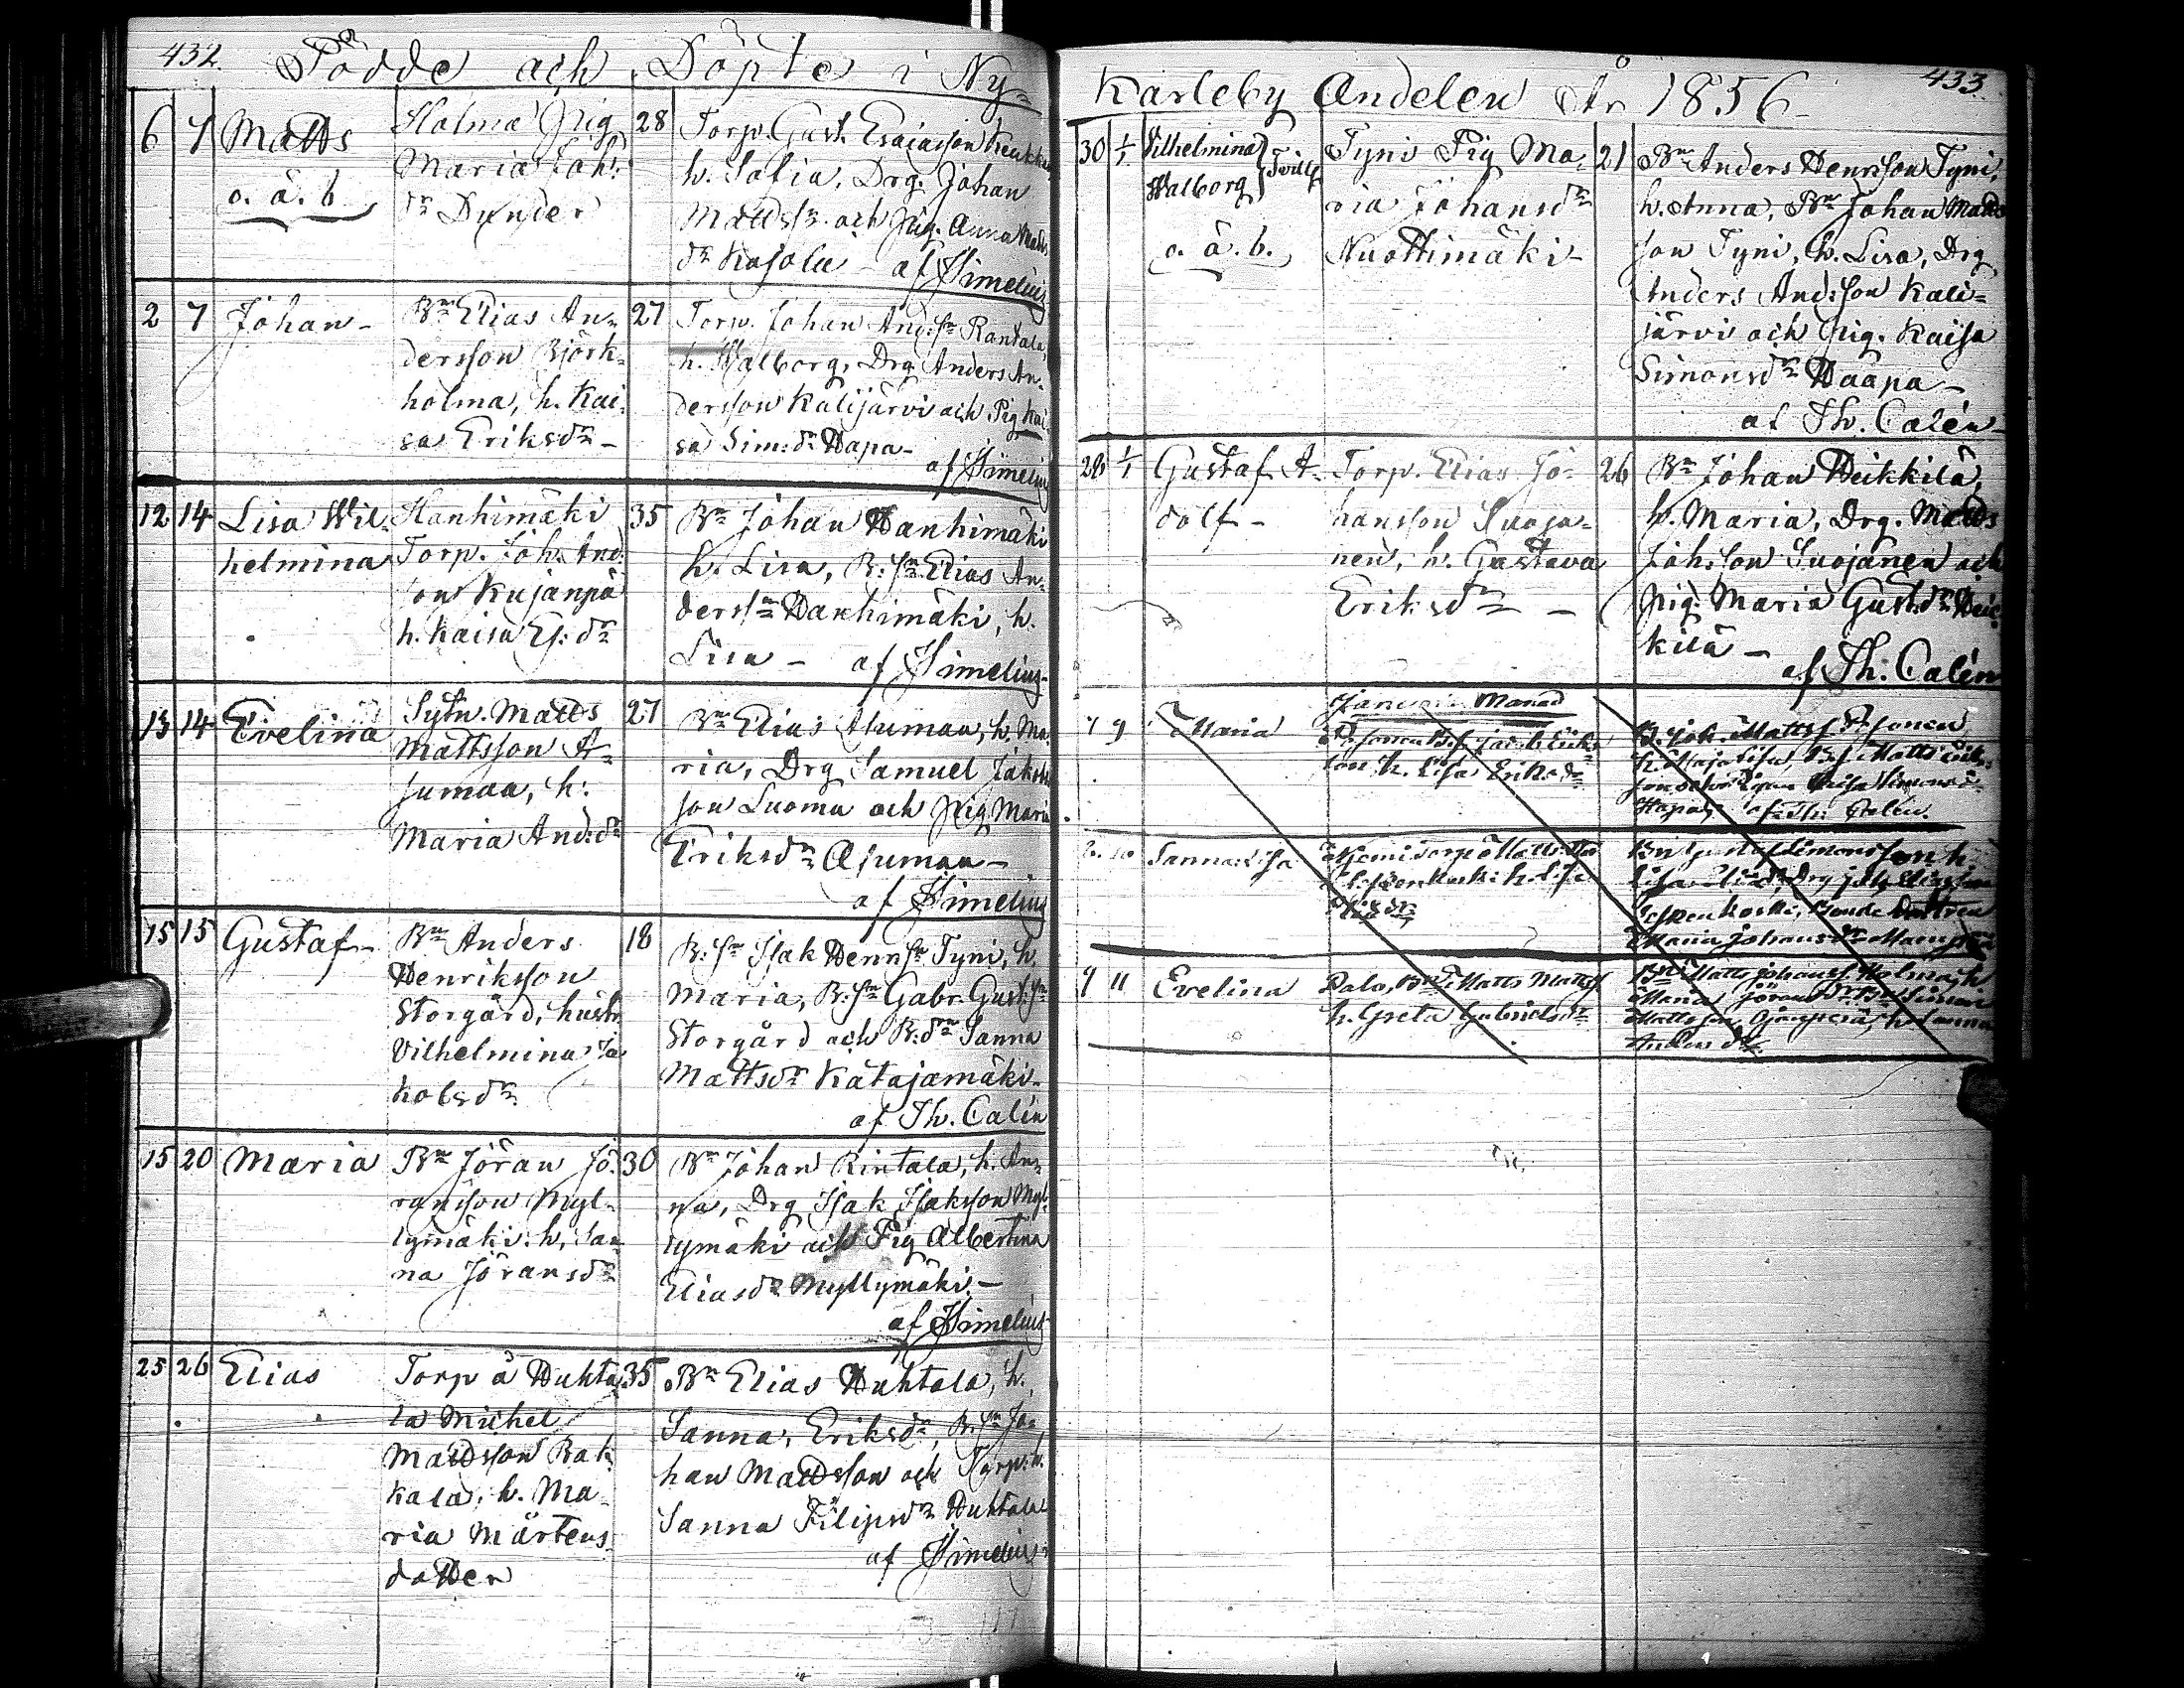 432. Födde och Döpte i Ny=
6 7 Matts
o. ä. b.
Holma Pig
Maria Joh:
dr Dunder
28
Torp. Gust. Esaiasson
h. Sofia, Drg. Johan
Mattssn och Pig. Anna Matts
dr Kojola - af Simelius
2 7 Johan -
Bn Elias An=
dersson Björk=
holma, h. Kai=
sa Eriksdr -
27
Torp. Johan And:sn Rantala,
h. Walborg, Drg Anders An=
dersson Kalijärvi och Pig Kai
sa Sim:dr Hapa -
af Simelius
12 14 Lisa Wil=
helmina
Hanhimäki
Torp. Joh. And:
son Kujanpä
h. Kaisa Es:dr
35
Bn Johan Hanhimäki
h. Lisa, B:sn Elias An=
derssn Hanhimäki, h.
Lisa - af Simelius -
13 14 Evelina
Sytn. Matts
Mattsson A=
jumaa, h:
Maria And:dr
27
Bn Elias Ajumaa, h. Ma=
ria, Drg Samuel Jakobs
son Luoma och Pig Maria
Eriksdr Ajumaa -
af Simelius
15 15 Gustaf -
Bn Anders
Henriksson
Storgård, hustr
Vilhelmina Ja
kobsdr
18
B:sn Isak Hennsn Tyni, h
Maria, B:sn Gabr. Gust:sn
Storgård och B:dr Sanna
Mattsdr Katajamäki -
af Th. Calén
15 20 Maria
Bn Jöran Jö=
ransson Myl=
lymäki: h, San
na Jöransdr
30
Bn Johan Rintala, h. An=
na, Drg Isak Isaksson Myl=
lymäki och Pig Albertina
Eliasdr Myllymäki. -
af Simelius -
25 26 Elias
Torp å Huhta
la Michel
Mattsson Bak
kala, h. Ma=
ria Mårtens
dotter
35
Bn Elias Huhtala, h.
Sanna, Eriksdr, B:sn Jo=
han Mattsson och Torp:h.
Sanna Filipsdr Huhtala
af Simelius -
Karleby Andelen År 1856 - 433.
30 1/1 Vilhelmina
Walborg } Tvill
o. ä. b.
Tyni Pig Ma=
ria Johansdr
Nuottimäki -
21
Bn Anders Henrsson Tyni,
h. Anna, Bn Johan Matts
son Tyni, h. Lisa, Drg
Anders And:son Kali=
järvi och Pig. Kaisa
Simonsdr Haapa -
af Th. Calén
28 1/1 Gustaf A=
dolf -
Torp. Elias Jo=
hansson Suoja=
nen, h. Gustava
Eriksdr -
26
Bn Johan Heikkilä,
h. Maria, Drg. Matts
Joh:son Suojanen och
Pig. Maria Gust:dr Heik
kilä -
af Th: Calén
Januari Månad
7 9 Maria
Jacob Eriks
son h. Lisa Eriksdr
B. Joh. Mattss
h. Maja Lisa, Bs Matts Eriks
son och Pigan Kaisa Simonsd
Hapa af Th: Calén.
10 Sanna Lisa
h. Lisa
Bn Gustaf Simonsson h:
Lisa
Maria Johansdr
9 11 Evelina
Palo, Bn Matts Mattss
h. Greta Gabrielsdr
Bn Matts Johanss. Holma, h
Maria Jöransdr Bn Simon
Mattsson h. Sanna
Andersdr.